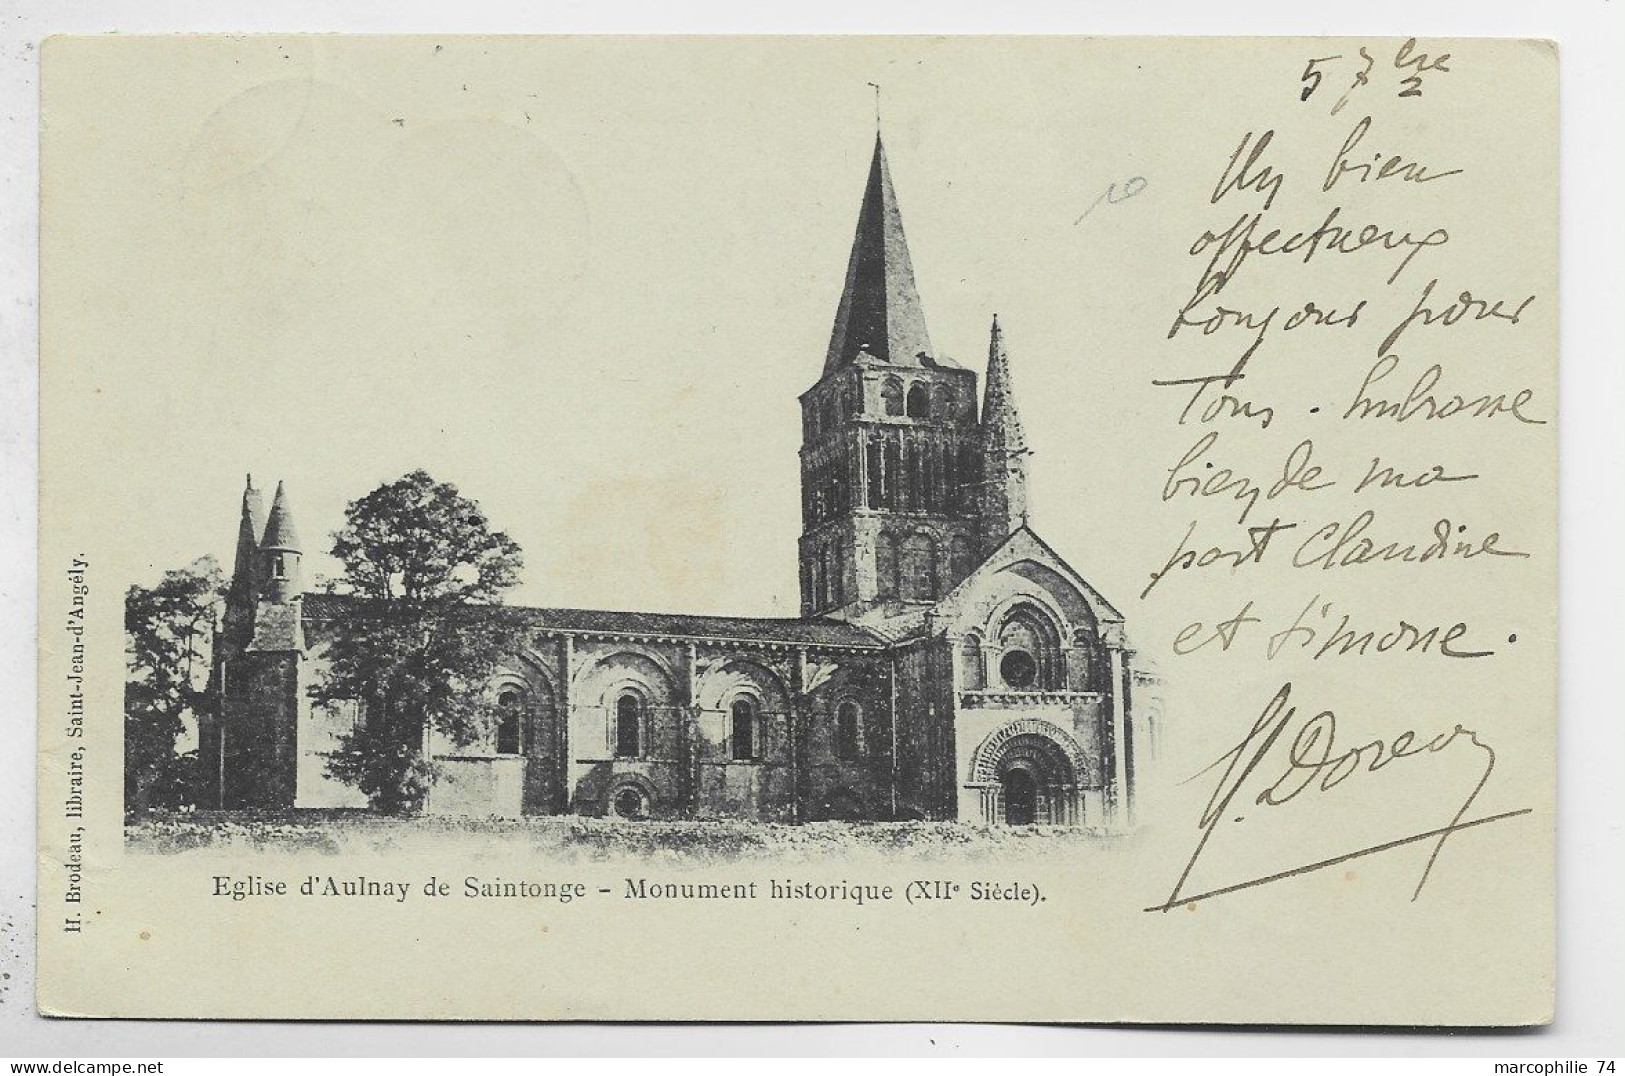 5 7bre 2
Un bien
affectueux
bonjour pour
Tous. Embrasse
bien de ma
part Claudine
et Simone.
Eglise d'Aulnay de Saintonge - Monument historique (XIIe Siècle).
H. Brodeau, libraire, Saint-Jean-d'Angély.
marcophilie 74